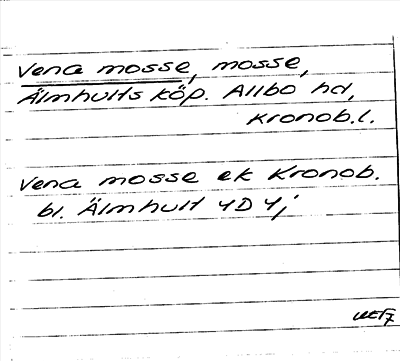 Vena mosse, mosse,
Älmhults köp. Allbo hd,
Kronob.l.
Vena mosse ek Kronob.
bl. Älmhult 4D 4j